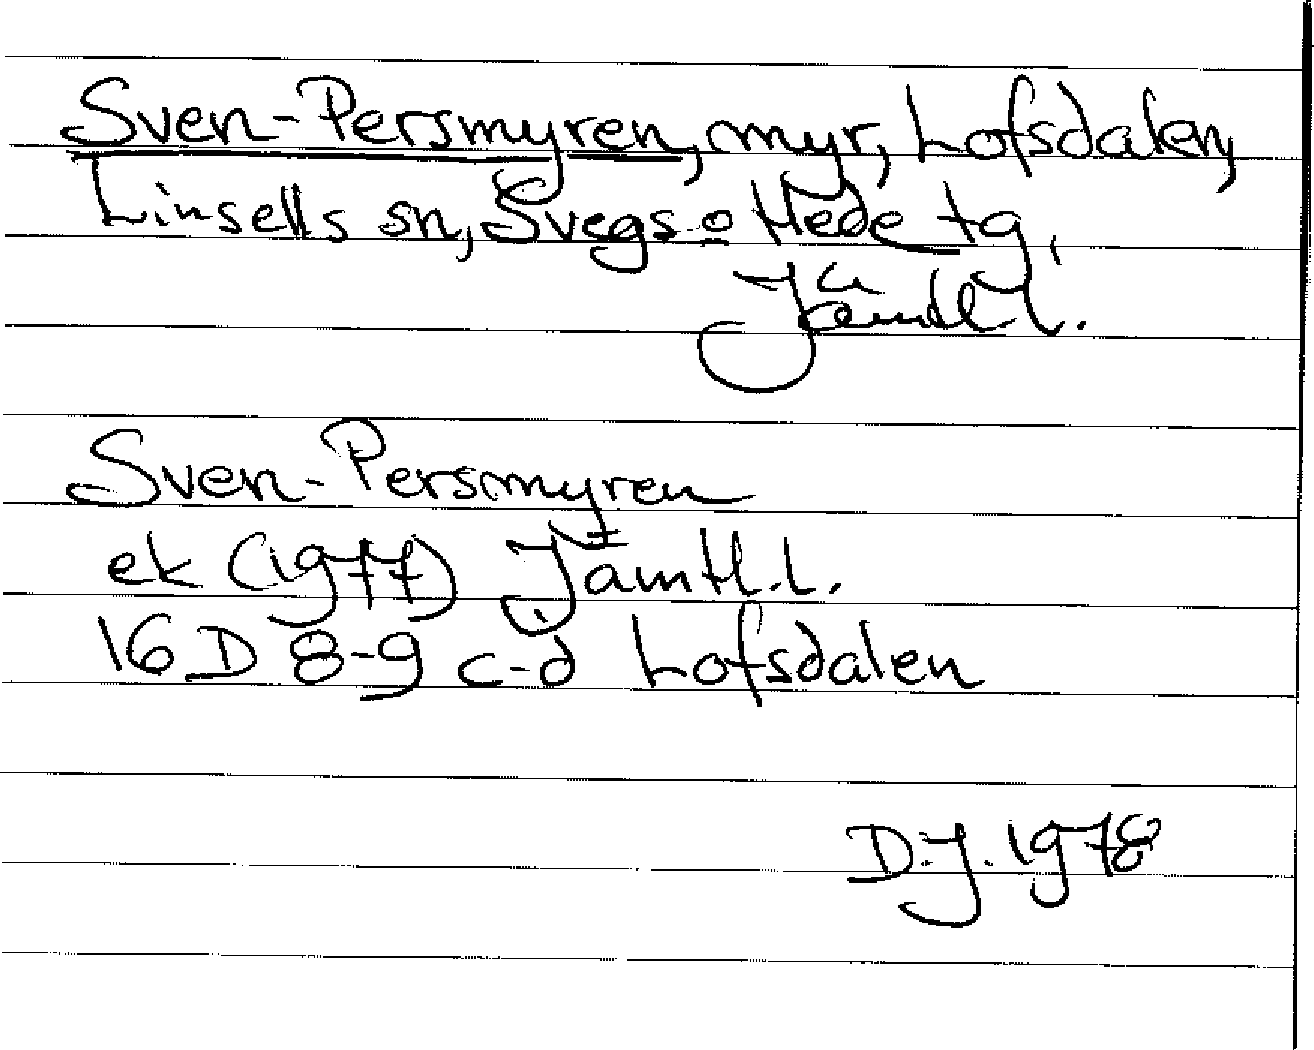 Sven-Persmyren, myr, Lofsdalen,
Linsells sn, Svegs o Hede tg,
Jämtl. l.
Sven-Persmyren
ek (1977) Jämtl.l.
16 D 8-9 c-d Lofsdalen
D.J. 1978